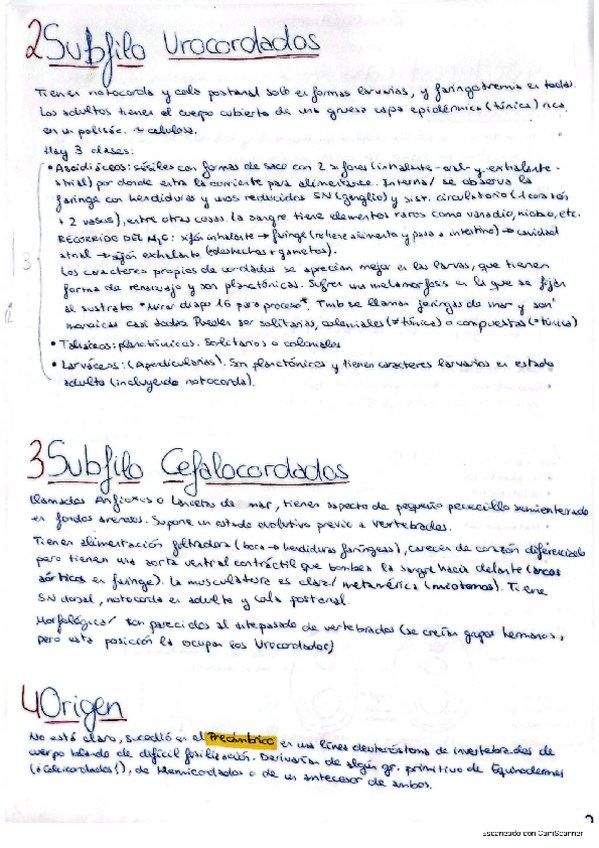 2 Subfilo Urocordados
Tienen notocorda y cola postanal solo en formas larvarias, y faringotremia en todas.
Los adultos tienen el cuerpo cubierto de una gruesa capa epidérmica (túnica) rica
en un polisác. ~ celulosa.
Hay 3 clases:
• Ascidiáceos: sésiles con formas de saco con 2 sifones (inhalante-oral y exhalante-
atrial) por donde entra la corriente para alimentarse. Interna/ se observa la
faringe con hendiduras y unos reducidos SN (ganglio) y sist. circulatorio (1 corazón
+ 2 vasos), entre otras cosas. La sangre tiene elementos raros como vanadio, niobio, etc.
RECORRIDO DEL H₂O: sifón inhalante → faringe (retiene alimento y pasa a intestino) → cavidad
atrial → sifón exhalante (+ desechos + gametos).
3
Los caracteres propios de cordados se aprecian mejor en las larvas, que tienen
forma de renacuajo y son planctónicas. Sufren una metamorfosis en la que se fijan
al sustrato *Mirar diapo 16 para proceso*. Tmb se llaman jeringas de mar y son
marinas casi todas. Pueden ser solitarias, coloniales (≠ túnica) o compuestas (= túnica)
• Taliáceos: planctónicos. Solitarios o coloniales
• Larváceos: (Apendicularias). Son planctónicos y tienen caracteres larvarios en estado
adulto (incluyendo notocorda).
3 Subfilo Cefalocordados
Llamados Anfioxos o Lancetas de mar, tienen aspecto de pequeño pececillo semienterrado
en fondos arenosos. Supone un estado evolutivo previo a vertebrados.
Tienen alimentación filtradora (boca → hendiduras faríngeas), carecen de corazón diferenciado
pero tienen una aorta ventral contráctil que bombea la sangre hacia delante (arcos
aórticos en faringe). La musculatura es clara/ metamérica (miotomos). Tiene
SN dorsal, notocorda en adulto y cola postanal.
Morfológica/ son parecidos al antepasado de vertebrados (se creían grupos hermanos,
pero esta posición la ocupan los Urocordados)
4 Origen
No está claro, sucedió en el Precámbrico en una línea deuteróstoma de invertebrados de
cuerpo blando de difícil fosilización. Derivarían de algún gr. primitivo de Equinodermos
(¡Calcicordados!), de Hemicordados o de un antecesor de ambos.
Escaneado con CamScanner